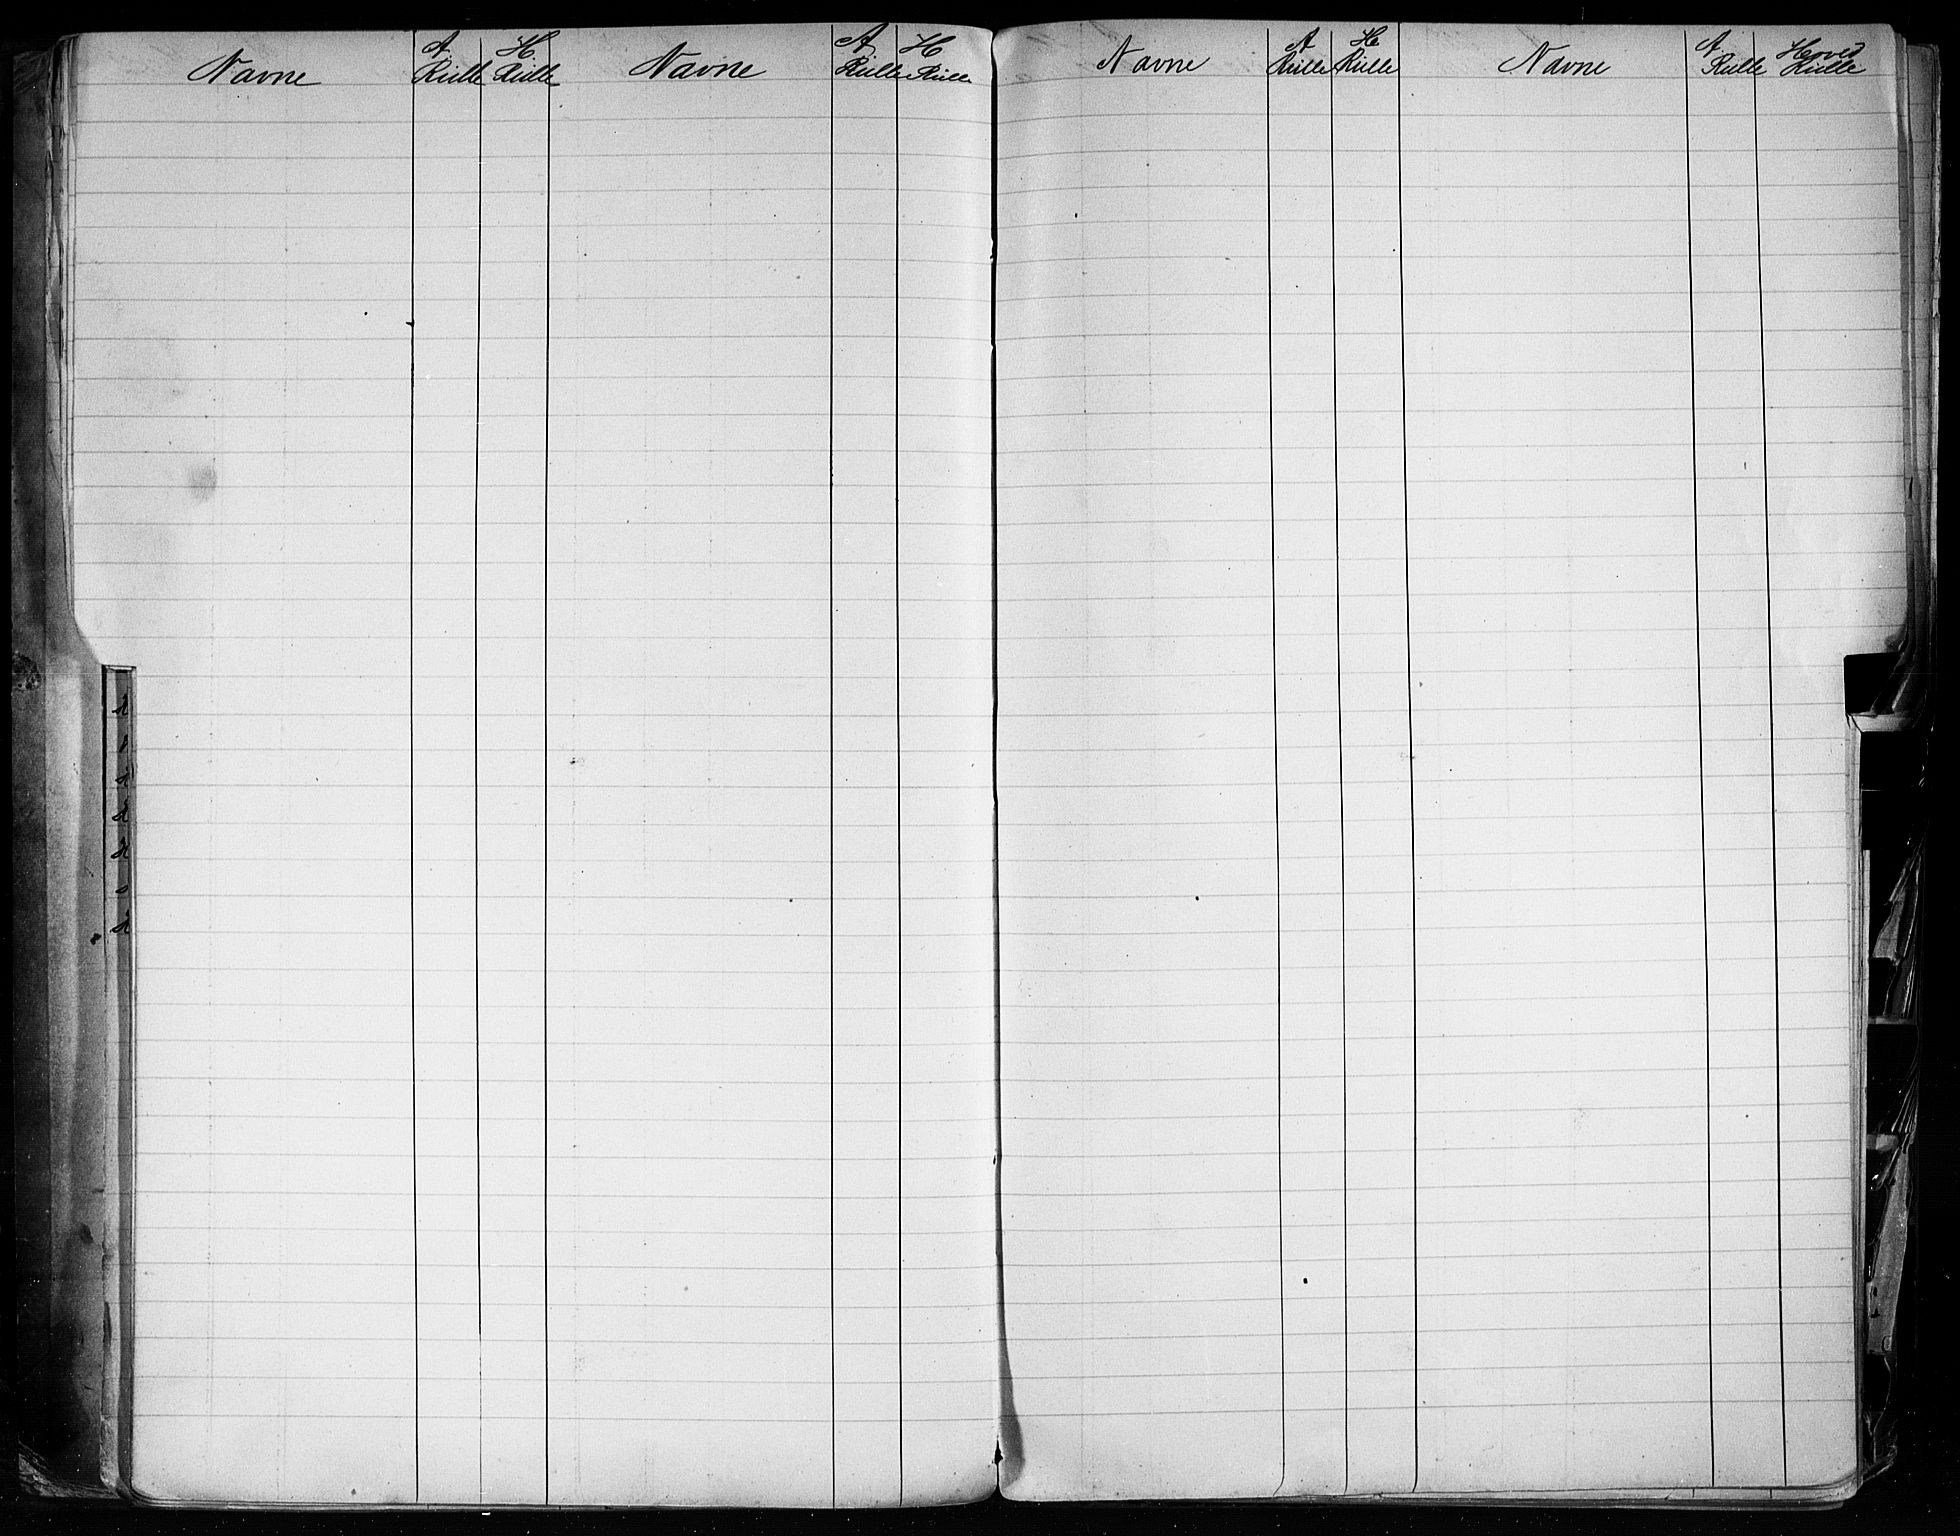 Navne A Rulle H Rulle Navne A Rulle H Rulle
Navne A Rulle H Rulle Navne A Rulle Hoved Rulle